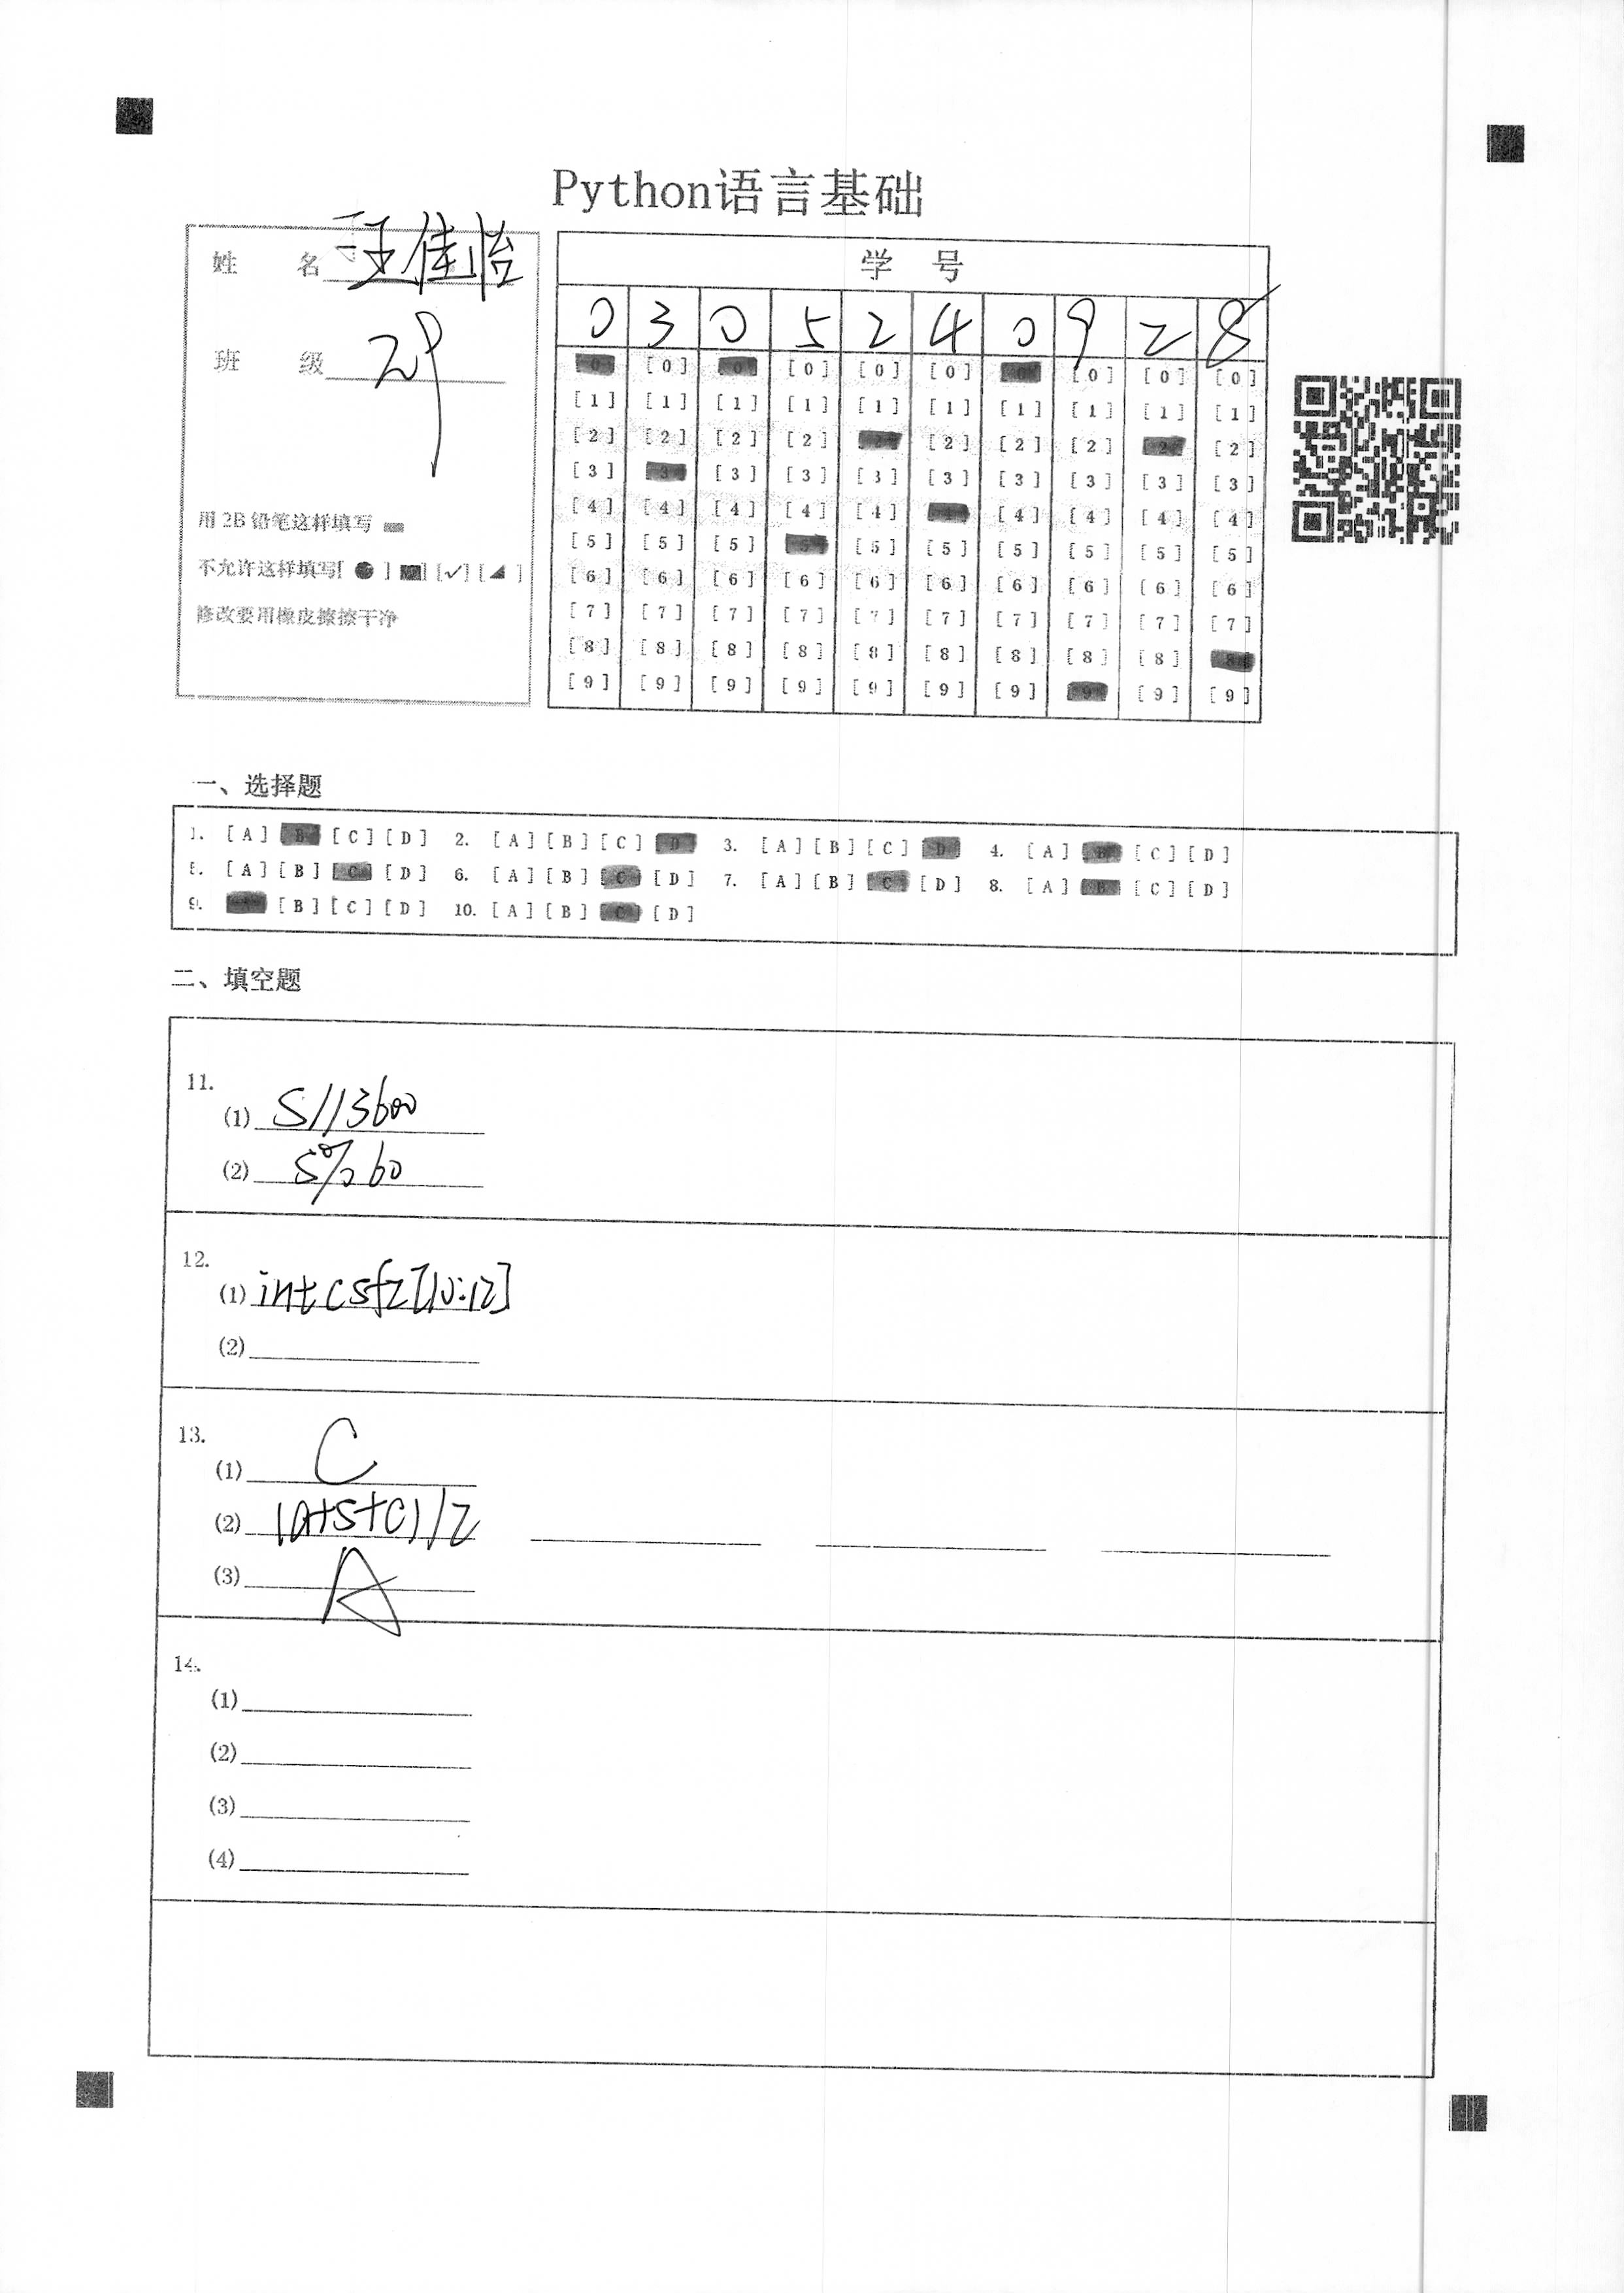 Python语言基础
姓 名 王佳怡
班 级 29
用 2B 铅笔这样填写
不允许这样填写[ ● ] [■] [✓] [◢ ]
修改要用橡皮擦擦干净
学 号
0 3 0 5 2 4 0 9 2 8
[0] [0] [0] [0] [0] [0] [0] [0] [0] [0]
[1] [1] [1] [1] [1] [1] [1] [1] [1] [1]
[2] [2] [2] [2] [2] [2] [2] [2] [2] [2]
[3] [3] [3] [3] [3] [3] [3] [3] [3] [3]
[4] [4] [4] [4] [4] [4] [4] [4] [4] [4]
[5] [5] [5] [5] [5] [5] [5] [5] [5] [5]
[6] [6] [6] [6] [6] [6] [6] [6] [6] [6]
[7] [7] [7] [7] [7] [7] [7] [7] [7] [7]
[8] [8] [8] [8] [8] [8] [8] [8] [8] [8]
[9] [9] [9] [9] [9] [9] [9] [9] [9] [9]
一、选择题
1. [A] [B] [C] [D] 2. [A] [B] [C] [D] 3. [A] [B] [C] [D] 4. [A] [B] [C] [D]
5. [A] [B] [C] [D] 6. [A] [B] [C] [D] 7. [A] [B] [C] [D] 8. [A] [B] [C] [D]
9. [A] [B] [C] [D] 10. [A] [B] [C] [D]
二、填空题
11.
(1) s//3600
(2) s%60
12.
(1) int(sfz[10:12]
(2)
13.
(1) C
(2) (a+s+c)/2
(3) A
14.
(1)
(2)
(3)
(4)